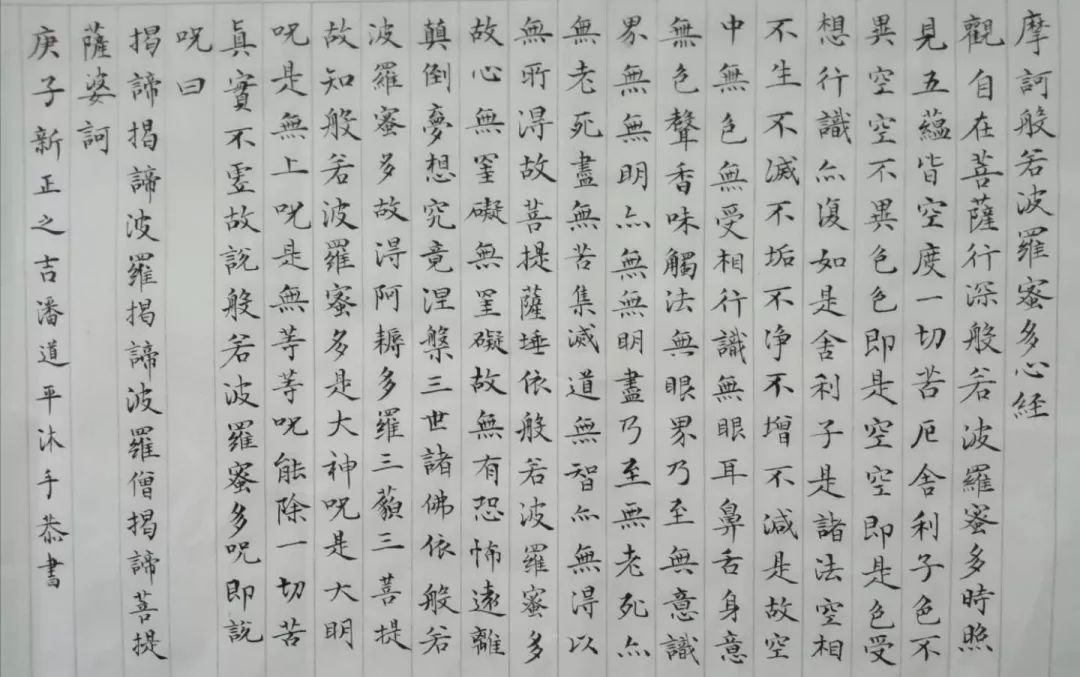 摩訶般若波羅蜜多心経
觀自在菩薩行深般若波羅蜜多時照
見五蘊皆空度一切苦厄舍利子色不
異空空不異色色即是空空即是色受
想行識亦復如是舍利子是諸法空相
不生不滅不垢不净不增不減是故空
中無色無受相行識無眼耳鼻舌身意
無色聲香味觸法無眼界乃至無意識
界無無明亦無無明盡乃至無老死亦
無老死盡無苦集滅道無智亦無得以
無所得故菩提薩埵依般若波羅蜜多
故心無罣礙無罣礙故無有恐怖遠離
顛倒夢想究竟涅槃三世諸佛依般若
波羅蜜多故得阿耨多羅三藐三菩提
故知般若波羅蜜多是大神呪是大明
呪是無上呪是無等等呪能除一切苦
真實不虛故說般若波羅蜜多呪即說
呪曰
揭諦揭諦波羅揭諦波羅僧揭諦菩提
薩婆訶
庚子新正之吉潘道平沐手恭書